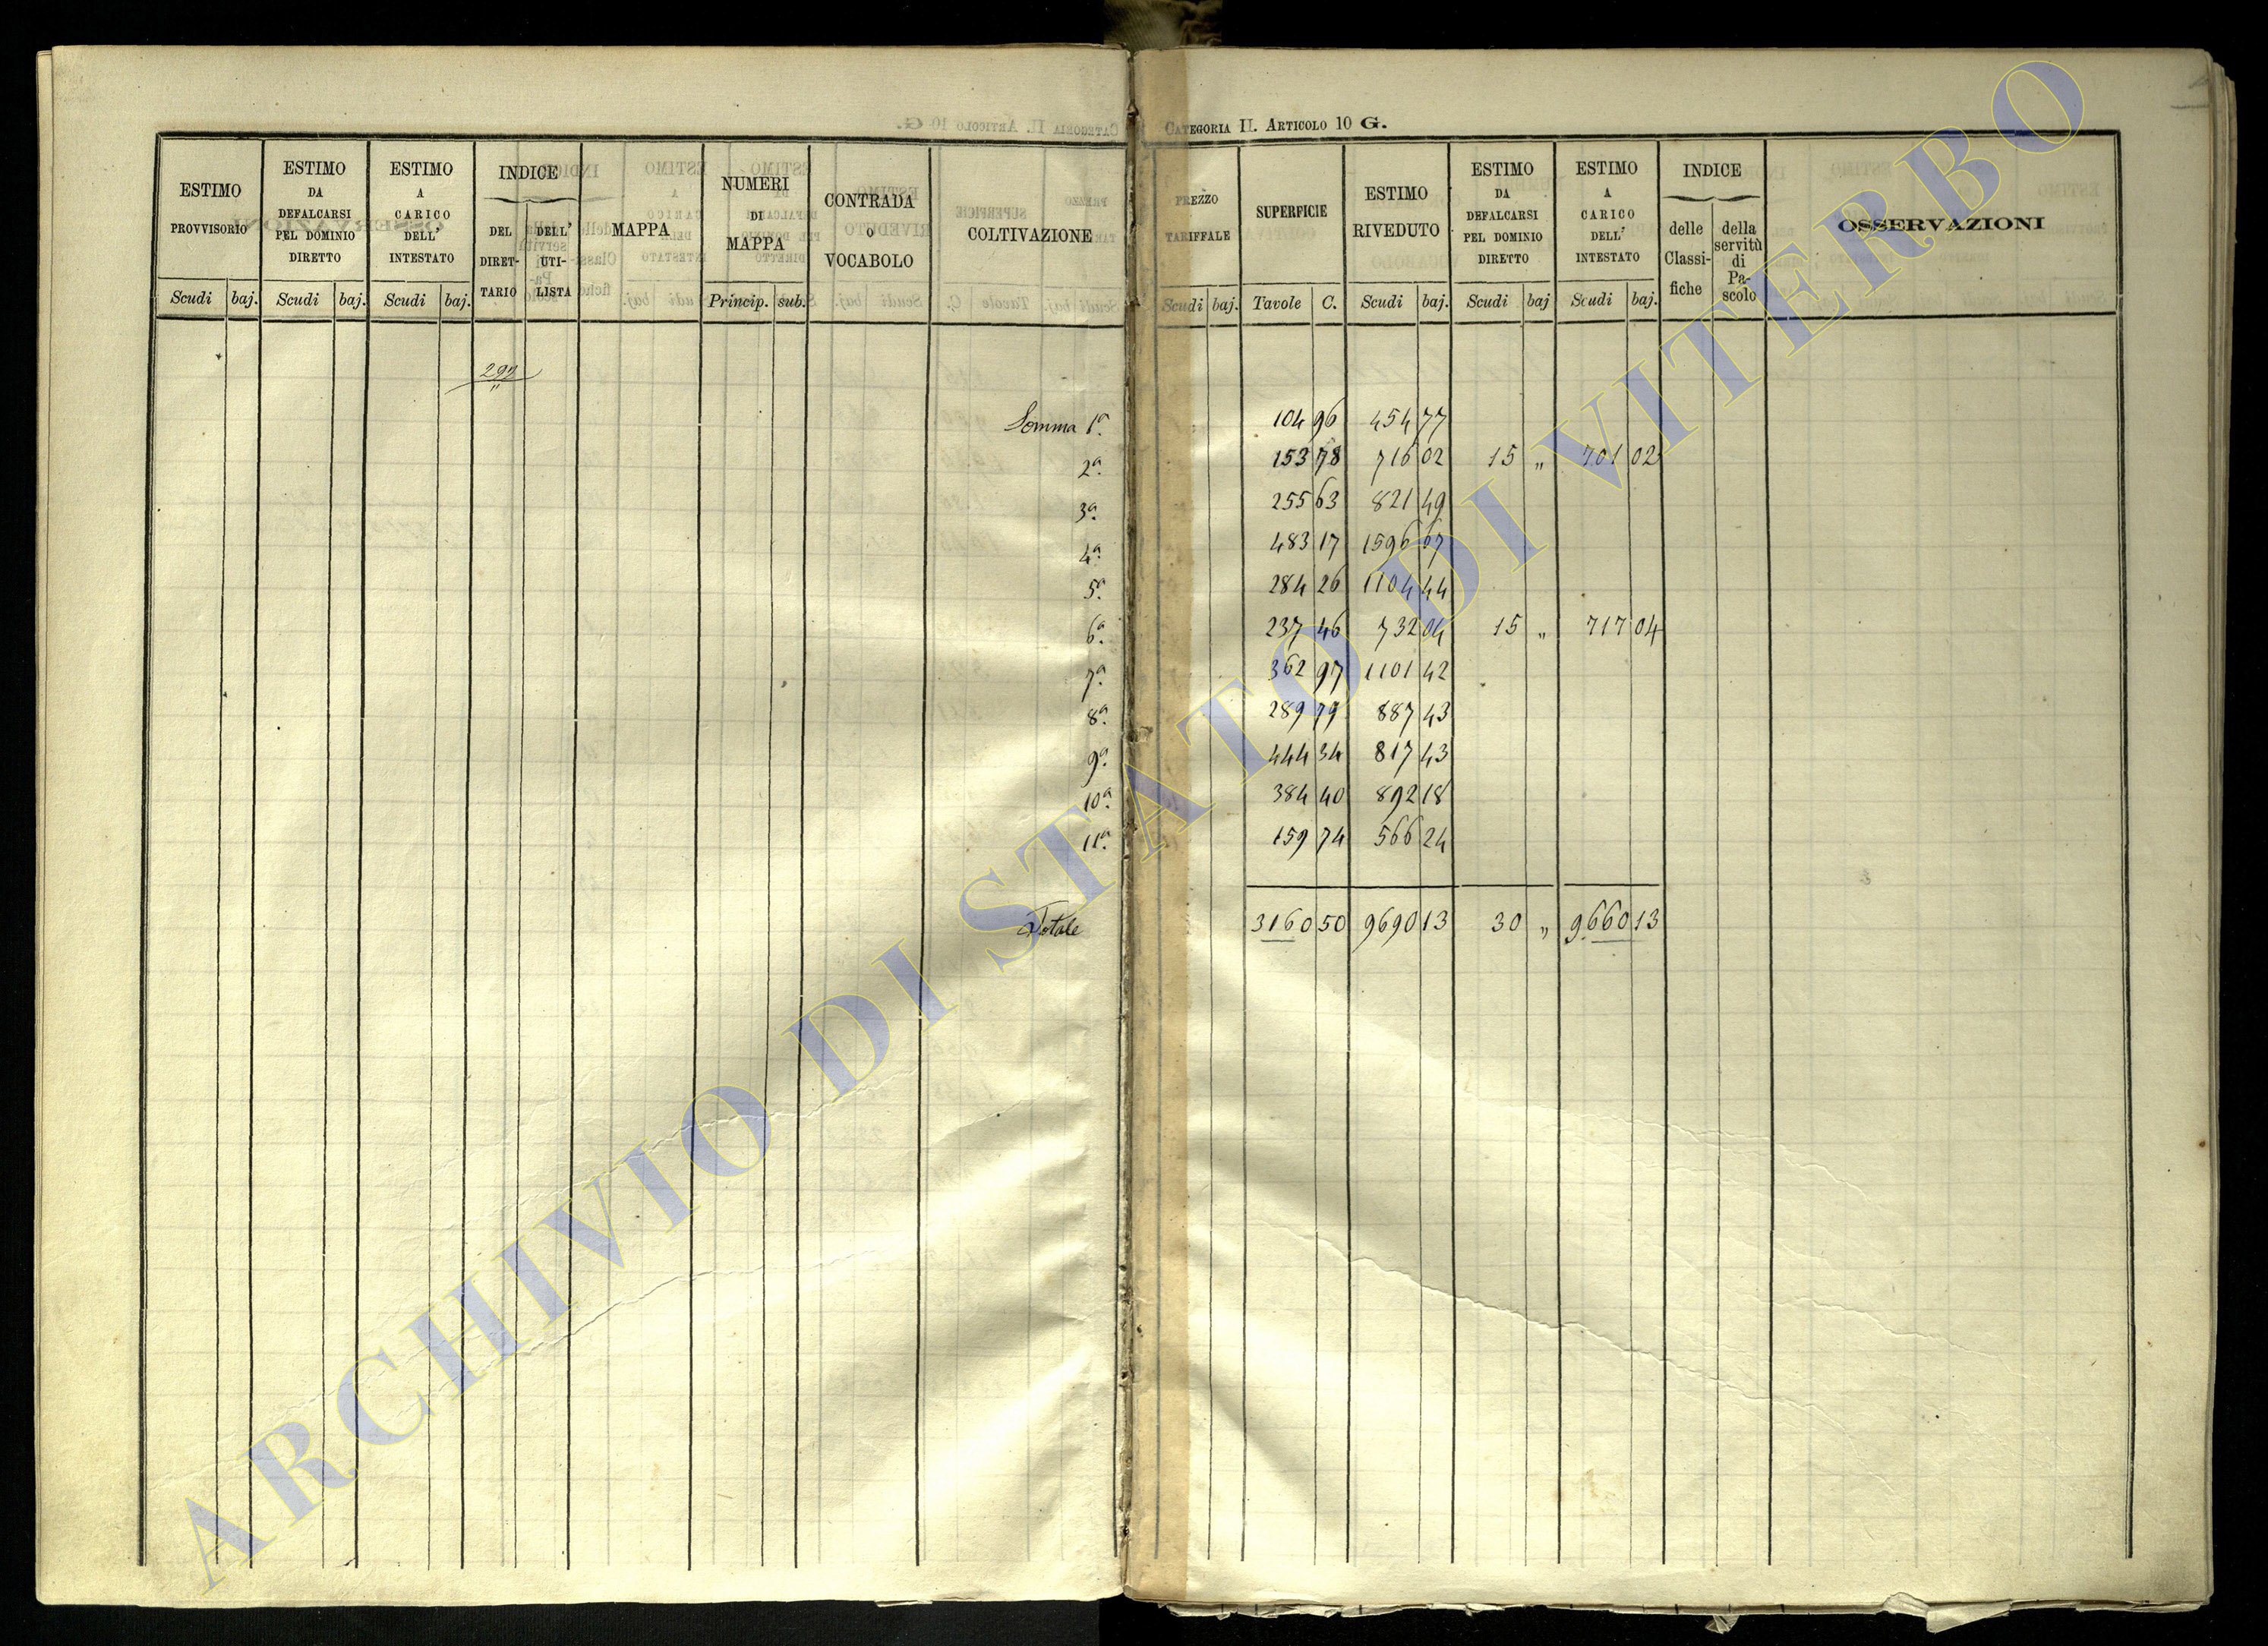 CATEGORIA II. ARTICOLO 10 G.
ESTIMO PROVVISORIO Scudi baj.
ESTIMO DA DEFALCARSI PEL DOMINIO DIRETTO Scudi baj.
ESTIMO A CARICO DELL' INTESTATO Scudi baj.
INDICE DEL DIRETTARIO DELL' UTILISTA
MAPPA
NUMERI DI MAPPA Princip. sub.
CONTRADA O VOCABOLO
COLTIVAZIONE
PREZZO TARIFFALE Scudi baj.
SUPERFICIE Tavole C.
ESTIMO RIVEDUTO Scudi baj.
ESTIMO DA DEFALCARSI PEL DOMINIO DIRETTO Scudi baj
ESTIMO A CARICO DELL' INTESTATO Scudi baj.
INDICE delle Classifiche della servitù di Pascolo
OSSERVAZIONI
292 "
Somma 1ª. 104 96 454 77
2ª. 153 78 716 02 15 " 701 02
3ª. 255 63 821 49
4ª. 483 17 1596 67
5ª. 284 26 1104 44
6ª. 237 46 732 04 15 " 717 04
7ª. 362 97 1101 42
8ª. 289 79 887 43
9ª. 444 34 817 43
10ª. 384 40 892 18
11ª. 159 74 566 24
Totale 3160 50 9690 13 30 " 9660 13
ARCHIVIO DI STATO DI VITERBO